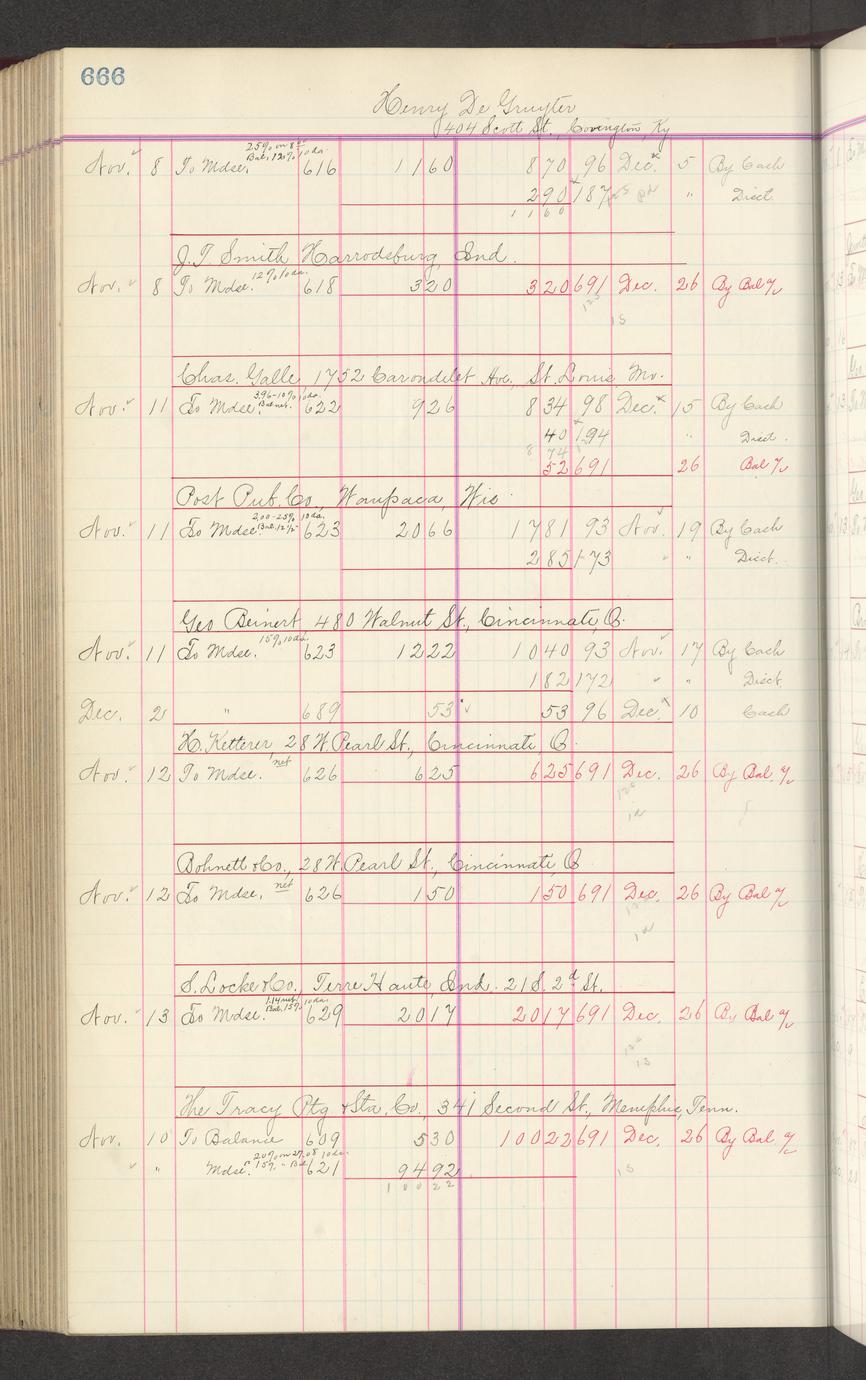 666
Henry De Gruyter
404 Scott St., Covington, Ky
25% on 8
Bal. 12% 10 da.
Nov. 8 To Mdse. 616 11 60 8 70 96 Dec. 5 By Cash
2 90 187 " Disct.
1 1 6 0
J. T. Smith Harrodsburg, Ind.
Nov. 8 To Mdse. 12% 10 da. 618 3 20 3 20 691 Dec. 26 By Bal %
15
Chas. Galle 1752 Carondelet Ave., St. Louis Mo.
3.96-10% 10 da.
Nov. 11 To Mdse. Bal net. 622 9 26 8 34 98 Dec. 15 By Cash
40 194 " Disct.
8 74
52 691 26 Bal %
Post Pub. Co., Waupaca, Wis
2.00-25% 10 da.
Nov. 11 To Mdse. Bal. 12½ 623 20 66 17 81 93 Nov. 19 By Cash
2 85 173 " " Disct.
Geo Beinert 480 Walnut St., Cincinnati, O.
Nov. 11 To Mdse. 15% 10 da. 623 12 22 10 40 93 Nov. 17 By Cash
1 82 172 " " Disct.
Dec. 2 " 689 53 53 96 Dec. 10 Cash
H. Ketterer, 28 W. Pearl St., Cincinnati O.
Nov. 12 To Mdse. net 626 6 25 6 25 691 Dec. 26 By Bal. %
Bohnett & Co., 28 W. Pearl St., Cincinnati, O
Nov. 12 To Mdse. net 626 1 50 1 50 691 Dec. 26 By Bal %
S. Locke & Co., Terre Haute, Ind. 21 S. 2d St.
1.14 net.
Nov. 13 To Mdse. Bal. 15% 10 da. 629 20 17 20 17 691 Dec. 26 By Bal %
13
The Tracy Ptg & Sta. Co., 341 Second St., Memphis, Tenn.
Nov. 10 To Balance 609 5 30 100 22 691 Dec. 26 By Bal %
20% on 27.08 10 da.
" " Mdse. 15% " Bal 621 94 92 15
1 0 0 2 2